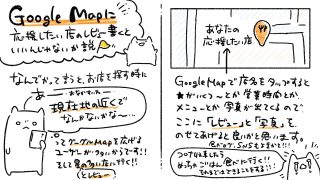 Google Mapに
応援したい店のレビュー書くと
いいんじゃないか説
なんでかって言うと、お店を探す時に
あーおなかすいた
現在地の近くで
なんかないかな〜…
ってグーグルMapを広げる
ユーザーが多いからです!!
そして
とレビュー
あなたの
応援したい店
Google Mapで店名をタップすると
★がいくつとか営業時間とか
メニューとか写真が出てくるので
ここに「レビュー」と「写真」を
のせてあげると良いかと思います。
コロナおさまったら
めっちゃごはん食べに行く!!